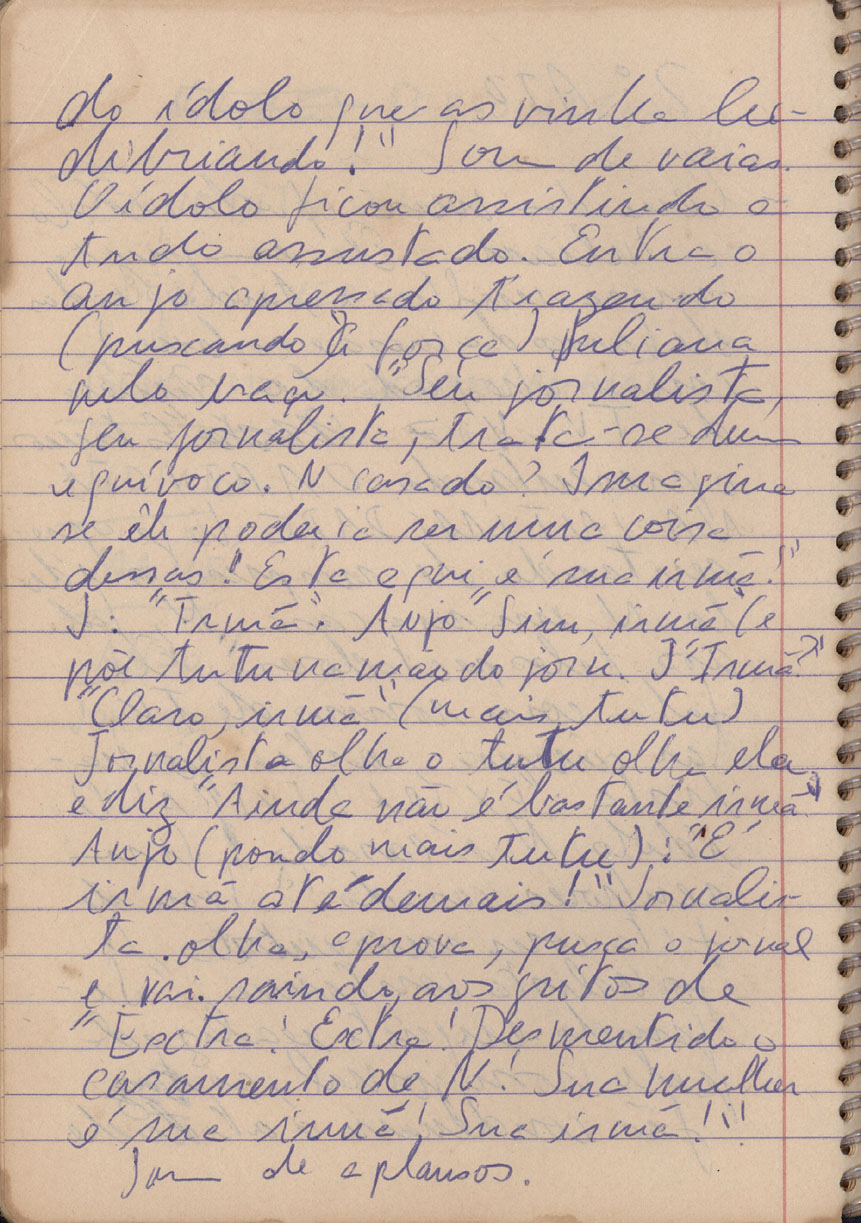 do ídolo que as vinha lu-
dibriando!" Som de vaias.
O ídolo ficou assistindo a
tudo assustado. Entra o
anjo apressado trazendo
(puxando à força) Juliana
pelo braço. "Seu jornalista,
seu jornalista, trata-se dum
equívoco. N casado? Imagine
se êle poderia ser uma coisa
dessas! Esta aqui é sua irmã!"
J: "Irmã". Anjo "Sim, irmã" (e
põe tutu na mao do jorn. J "Irmã?"
"Claro, irmã" (mais tutu)
Jornalista olha o tutu olha ela
e diz "Ainda não é bastante irmã"
Anjo (pondo mais tutu): "É
irmã até demais!" Jornalis-
ta olha, aprova, puxa o jornal
e vai saindo, aos gritos de
"Extra! Extra! Desmentido o
casamento de N! Sua mulher
é sua irmã! Sua irmã!"
Som de aplausos.